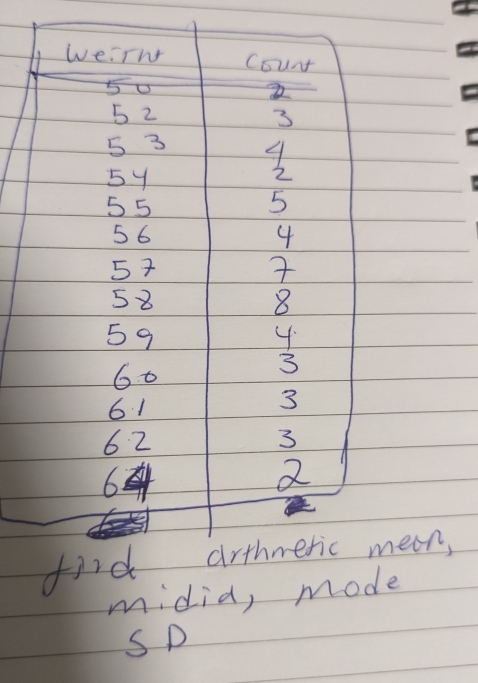 Weirht Count
50 2
52 3
53 4
54 2
55 5
56 4
57 7
58 8
59 4
60 3
61 3
62 3
64 2
find arthmetic mean,
midid, mode
SD